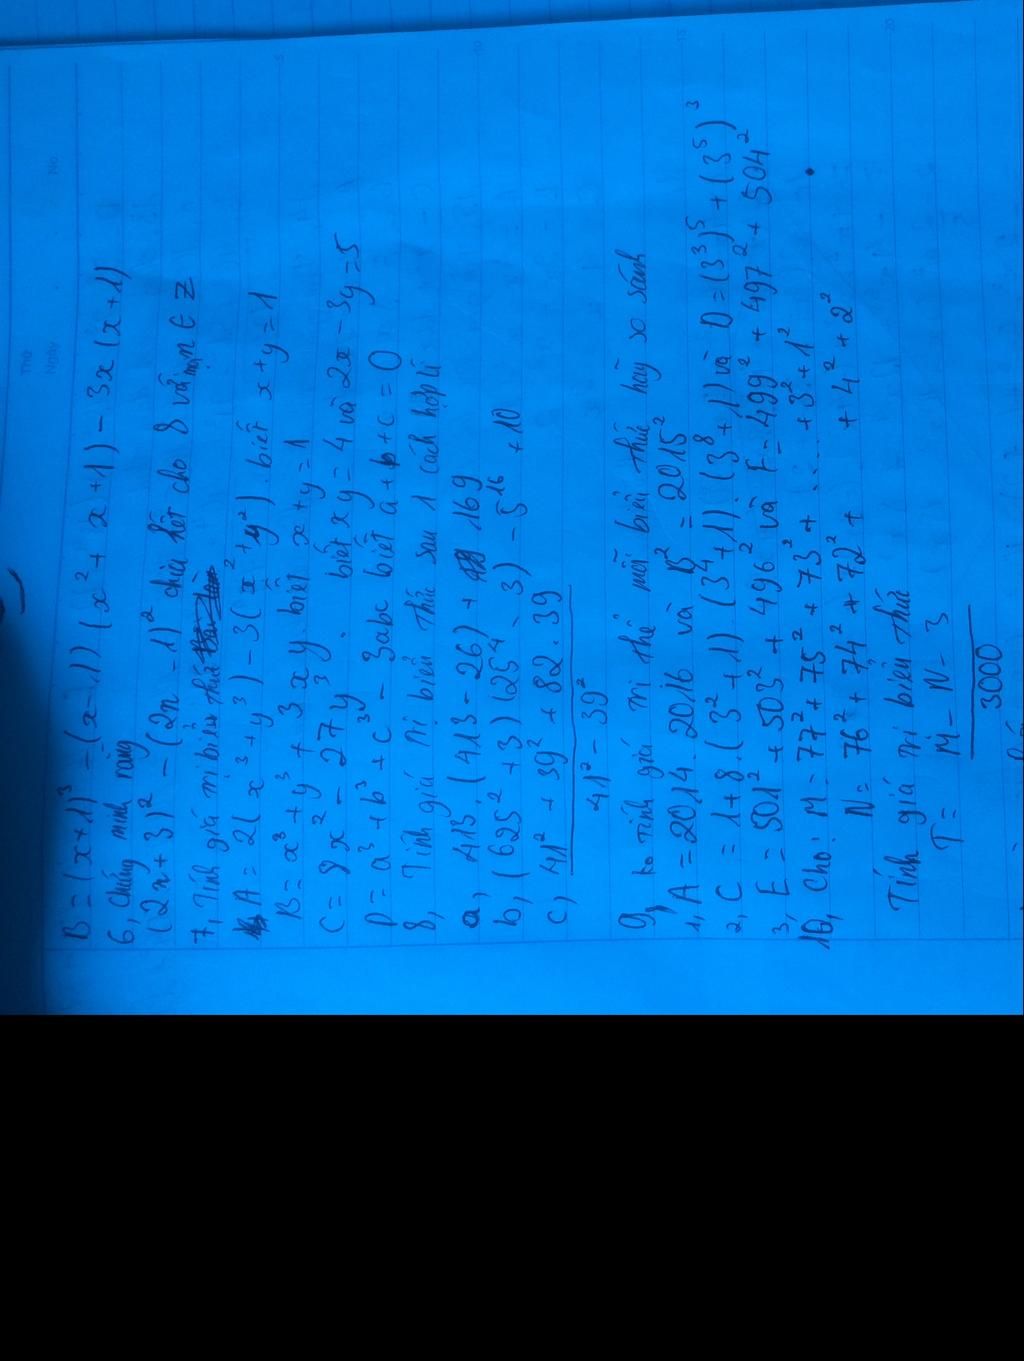 Thứ
Ngày
No
B = (x+1)³ - (x-1)(x²+x+1) - 3x(x+1)
6, chứng minh rằng
(2n+3)² - (2n-1)² chia hết cho 8 với mọi n ∈ Z
7, Tính giá trị biểu thức
A = 2(x³+y³) - 3(x²+y²) biết x+y=1
B = x³+y³+3xy biết x+y=1
C = 8x² - 27y³ biết xy=4 và 2x-3y=5
P = a³+b³+c³ - 3abc biết a+b+c=0
8, Tính giá trị biểu thức sau 1 cách hợp lí
a, 413.(413-26)+169
b, (625²+3)(25⁴-3) - 5¹⁶+10
c, 41²+39²+82.39
41²-39²
9, ko tính giá trị thể mỗi biểu thức hãy so sánh
1, A = 2014.2016 và B = 2015²
2, C = 1+8.(3²+1)(3⁴+1).(3⁸+1) và D=(3³)⁵+(3⁵)³
3, E = 501²+503²+496² và F=499²+497²+504²
10, Cho: M = 77²+75²+73²+....+3²+1²
N = 76²+74²+72²+ +4²+2²
Tính giá trị biểu thức
T = M-N-3
3000